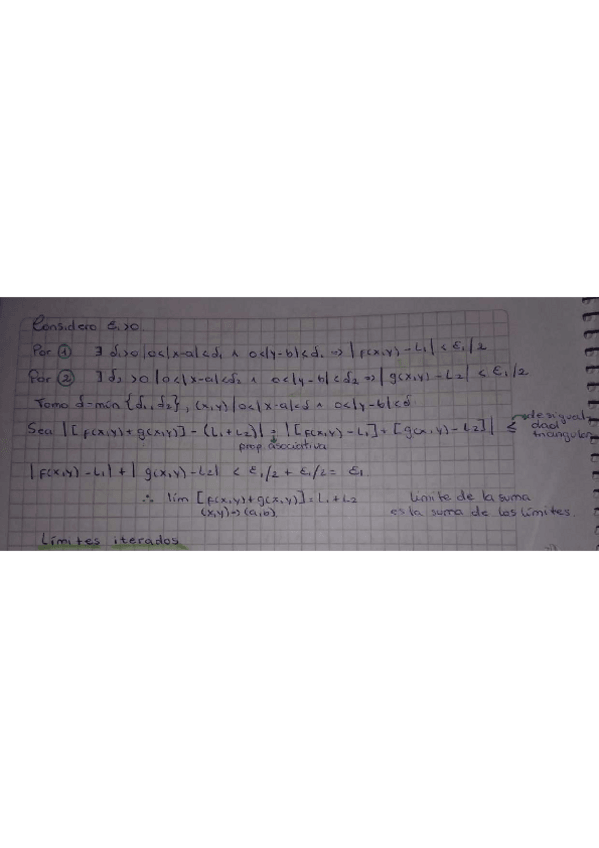 Considero ε₁>0.
Por ① ∃ δ₁>0 | 0<|x-a|<δ₁ ∧ 0<|y-b|<δ₁ ⇒ |f(x,y) - L₁| < ε₁/2
Por ② ∃ δ₂ >0 | 0<|x-a|<δ₂ ∧ 0<|y-b|<δ₂ ⇒ |g(x,y) - L₂| < ε₁/2
Tomo δ=mín {δ₁, δ₂}, (x,y) | 0<|x-a|<δ ∧ 0<|y-b|<δ.
Sea |[f(x,y)+g(x,y)] - (L₁+L₂)| = |[f(x,y) - L₁] + [g(x,y) - L₂]| ≤ → desigual-
dad
triangular
prop. asociativa
|f(x,y) - L₁| + | g(x,y) - L₂| < ε₁/2 + ε₁/2 = ε₁
∴ lím [f(x,y)+g(x,y)] = L₁+L₂ límite de la suma
(x,y)→(a,b) es la suma de los límites.
Límites iterados